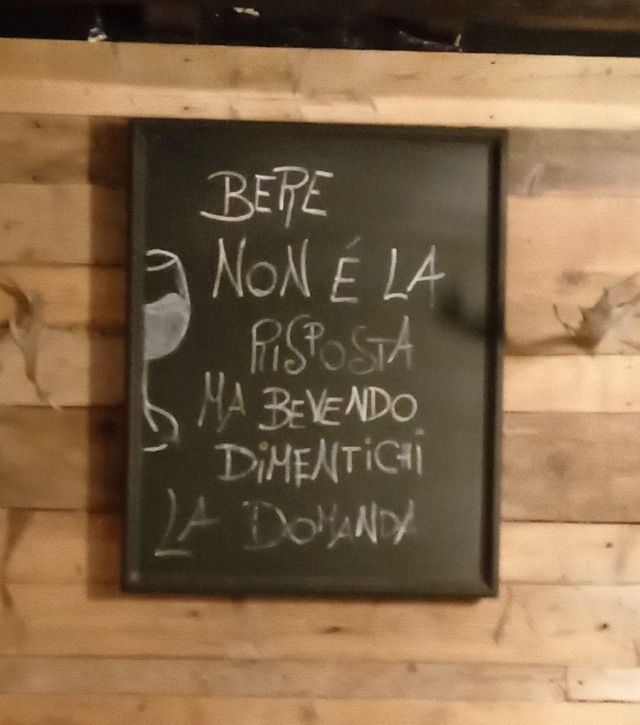 BERE
NON É LA
RISPOSTA
MA BEVENDO
DiMENTiCHi
LA DOMANDA